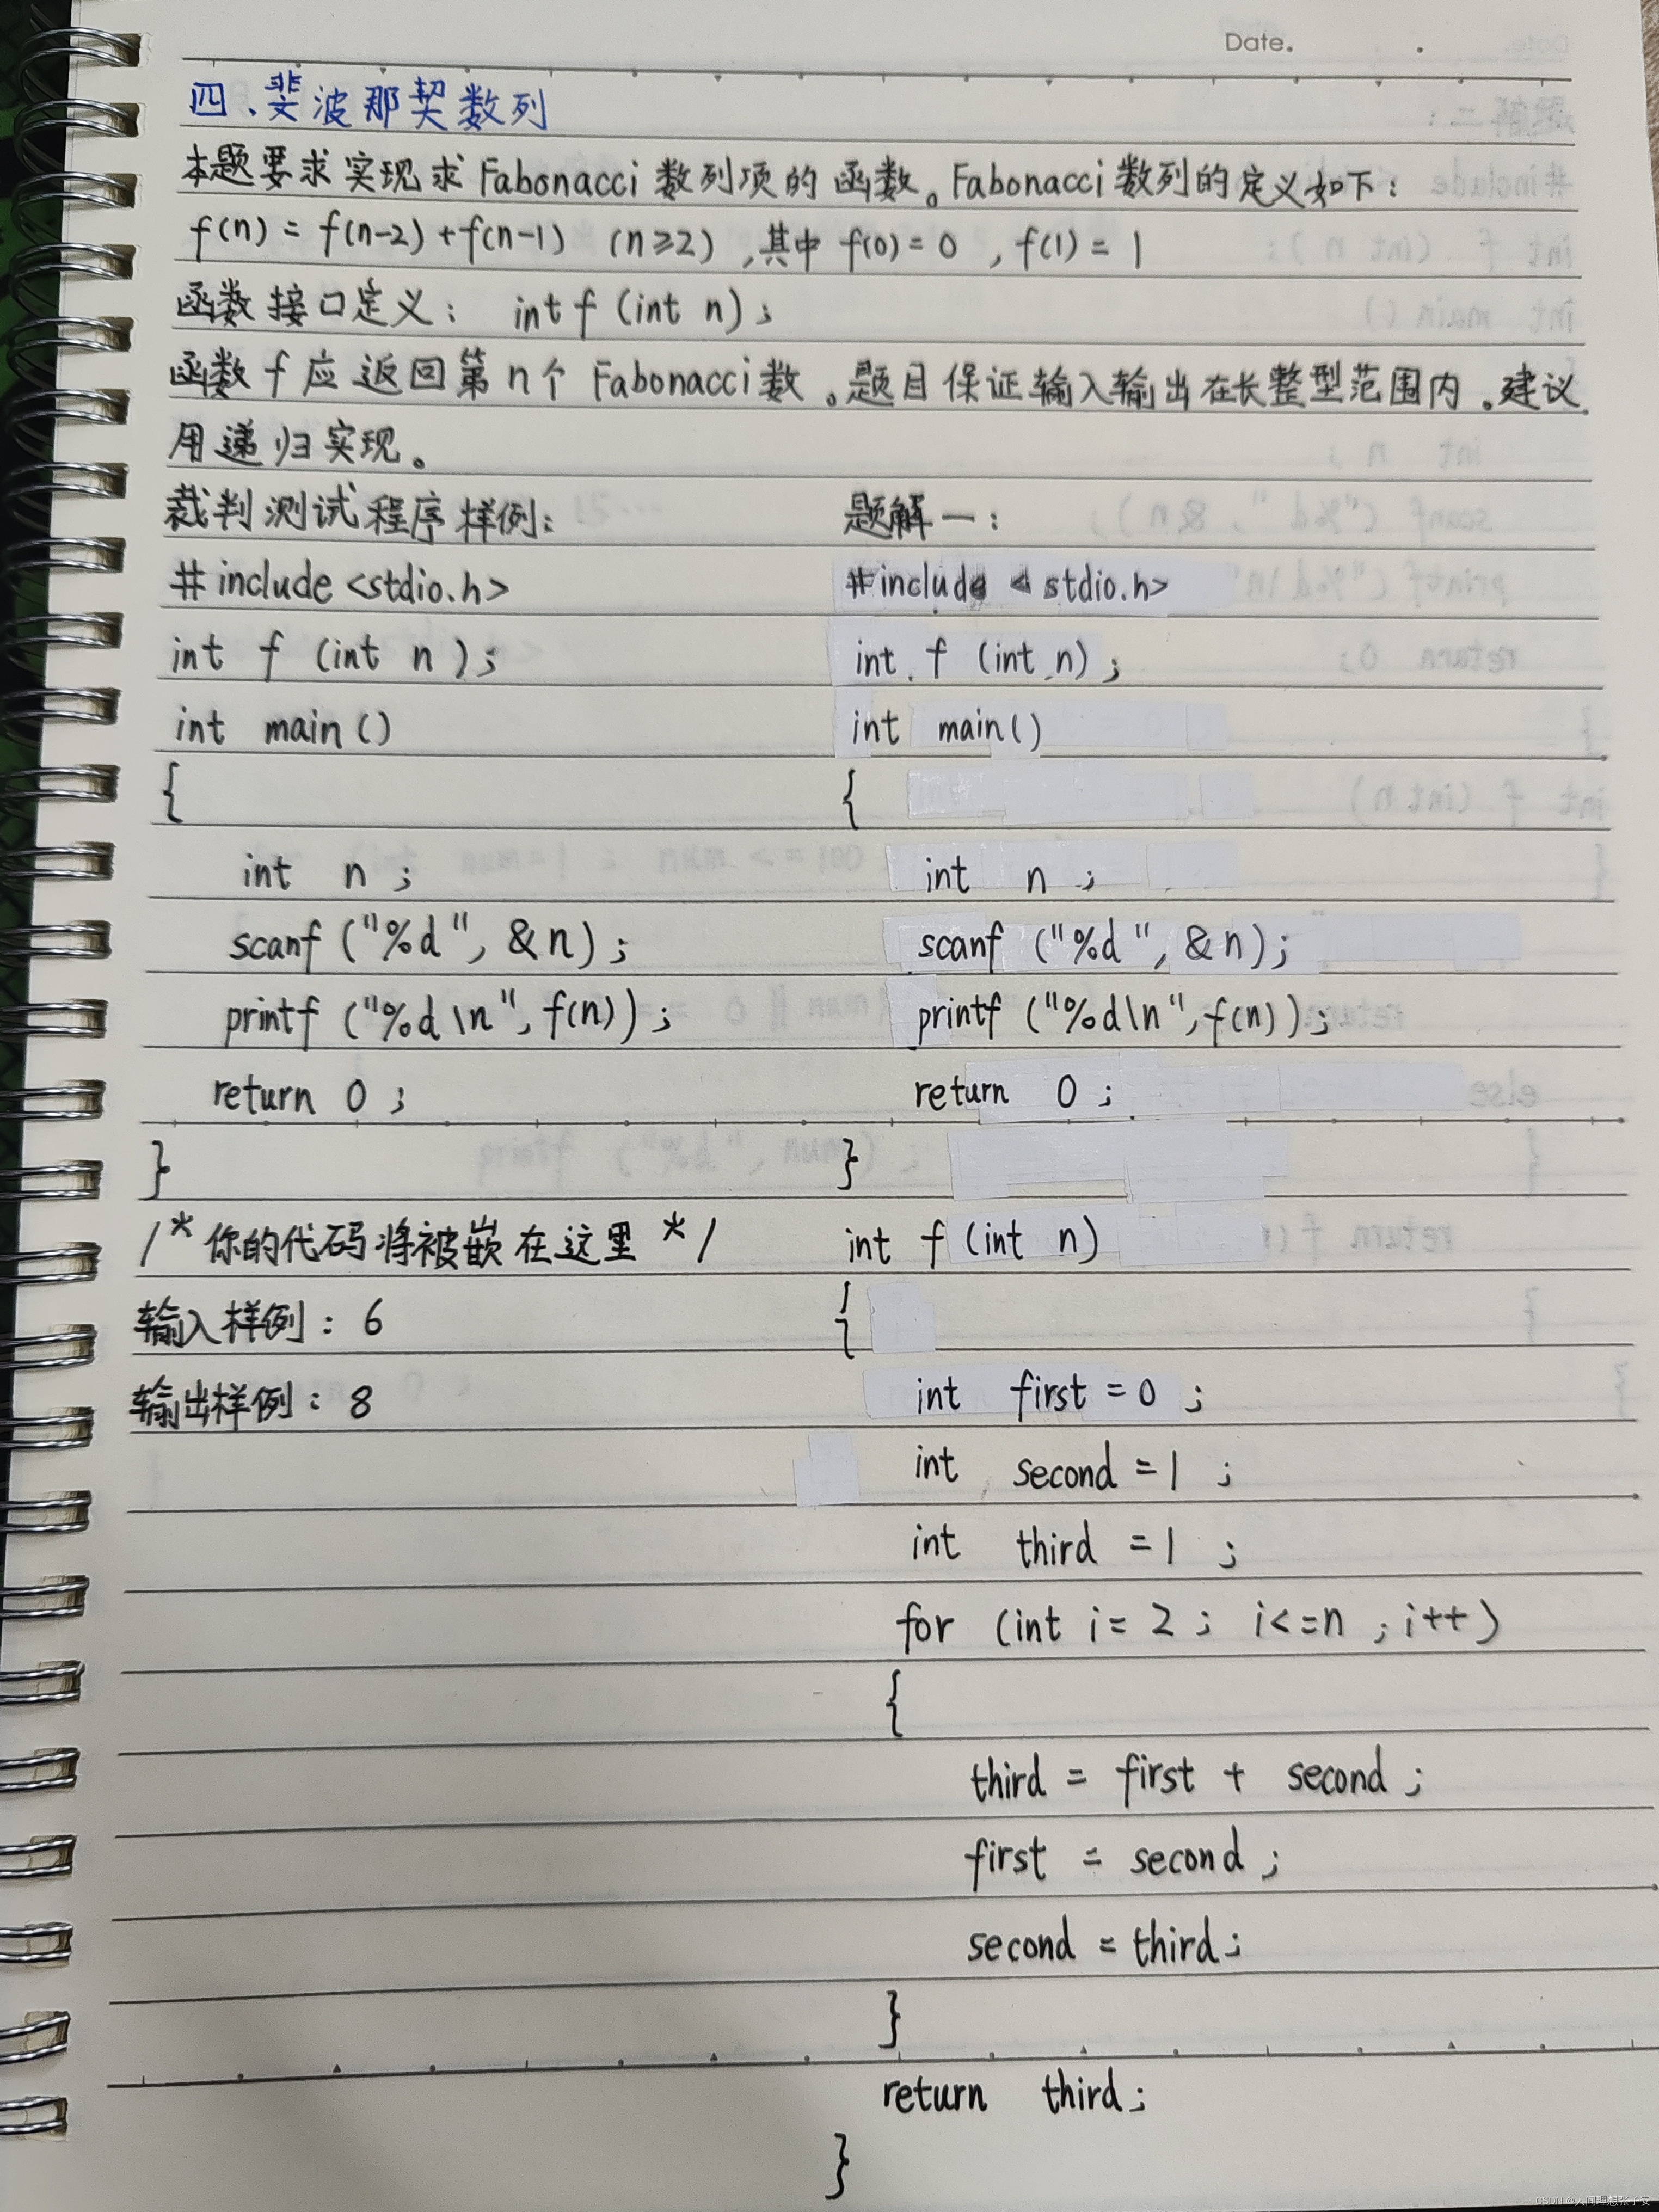 Date.
四、斐波那契数列
本题要求实现求Fabonacci数列项的函数。Fabonacci数列的定义如下:
f(n) = f(n-2)+f(n-1) (n≥2),其中 f(0)=0 , f(1)=1
函数接口定义: int f (int n);
函数 f 应返回第n个 Fabonacci数。题目保证输入输出在长整型范围内。建议
用递归实现。
裁判测试程序样例:
#include <stdio.h>
int f (int n);
int main ()
{
int n ;
scanf ("%d", &n);
printf ("%d\n", f(n));
return 0 ;
}
/* 你的代码将被嵌在这里 */
输入样例: 6
输出样例: 8
题解一:
#include <stdio.h>
int f (int n);
int main()
{
int n ;
scanf ("%d", &n);
printf ("%d\n", f(n));
return 0 ;
}
int f (int n)
{
int first = 0 ;
int second = 1 ;
int third = 1 ;
for (int i = 2 ; i<=n ; i++)
{
third = first + second ;
first = second ;
second = third ;
}
return third ;
}